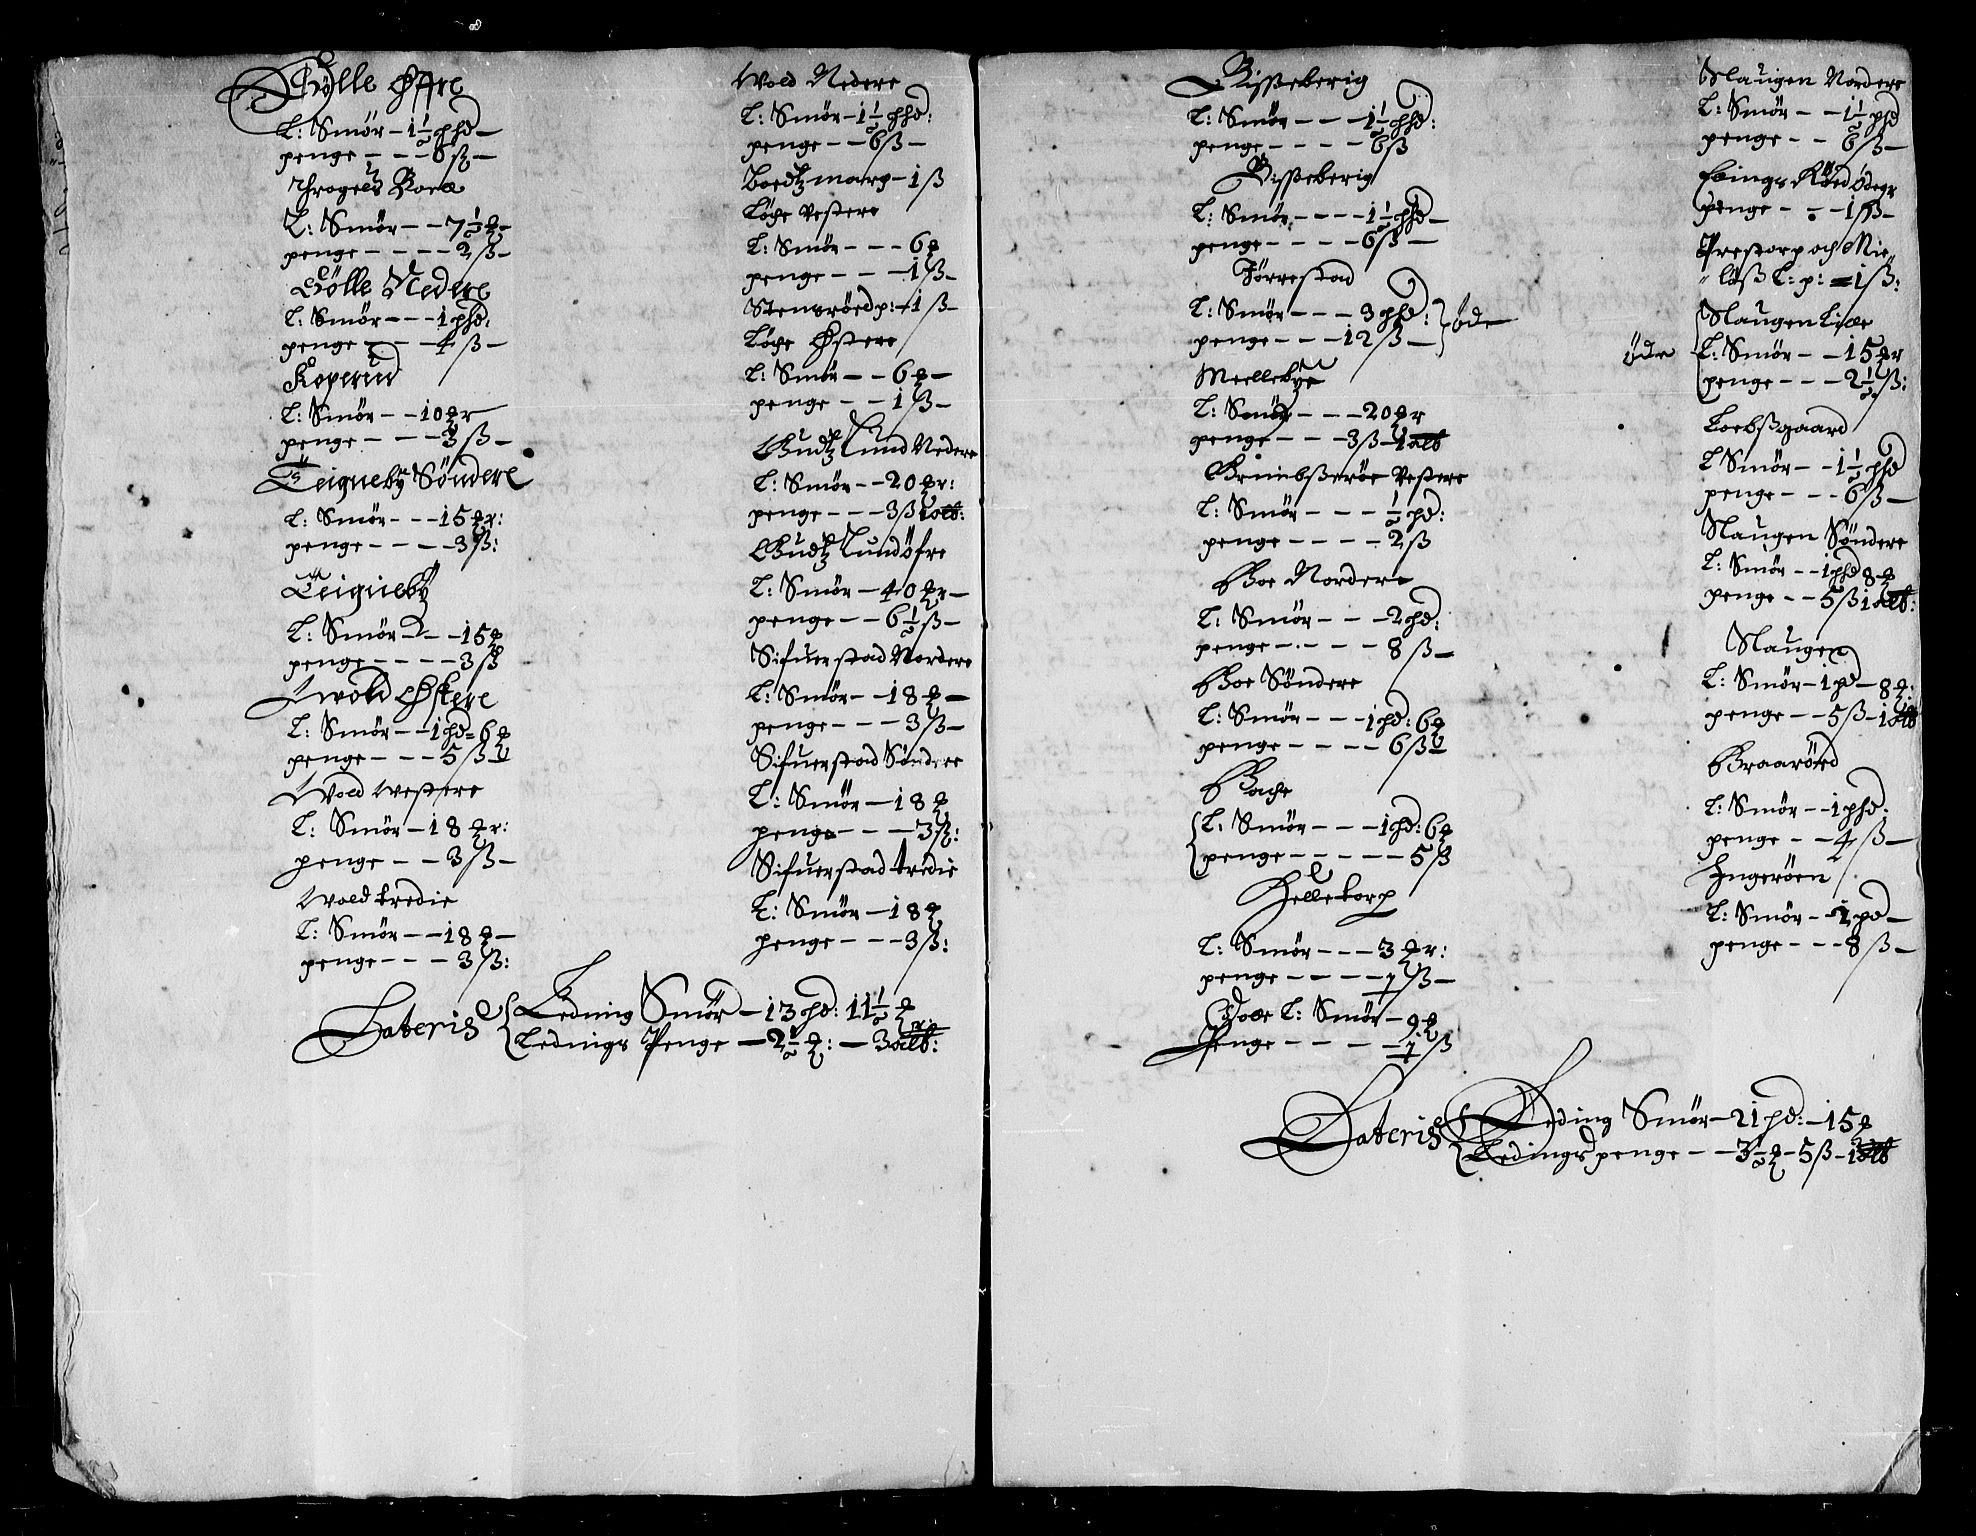 Bölle Öffre
L: Smör – 1½ phd –
penge – – – 6 ß –
Throgels Roed
L: Smör – – 7½ ℔ –
penge – – – – 2 ß –
Bölle Nedere
L: Smör – – – 1 phd:
penge – – – – 4 ß –
Koperud
L: Smör – – 10 ℔r
penge – – – – 3 ß –
Teigneby Söndere
L: Smör – – – 15 ℔r:
penge – – – – 3 ß:
Teigneby
L: Smör – – 15 ℔
penge – – – – 3 ß
Wold Östere
L: Smör – – 1 phd – 6 ℔
penge – – – 5 ß –
Wold westere
L: Smör – 18 ℔r:
penge – – 3 ß –
Wold tredie
L: Smör – – 18 ℔ –
penge – – – 3 ß:
Wold Nedere
L: Smör – 1½ phd:
penge – – 6 ß –
Boedtz marp – 1 ß
Löche vestere
L: Smör – – – 6 ℔
penge – – – – 1 ß –
Stensröed p: – 1 ß –
Löche Östere
L: Smör – – 6 ℔ –
penge – – 1 ß –
Gudtzlund Nedere
L: Smör – – 20 ℔r:
penge – – – 3 ß 1 alb:
Gudtzlund öfre
L: Smör – 40 ℔r –
penge – – 6½ ß –
Sifuerstad Nordere
L: Smör – – 18 ℔ –
penge – – – 3 ß –
Sifuerstad Söndere
L: Smör – 18 ℔
penge – – – 3 ß:
Sifuerstad tredie
L: Smör – 18 ℔
penge – – – 3 ß:
Lateris
Leding Smör – 13 phd: 11½ ℔r:
Ledings Penge – 2½ ℔: – 3 alb:
Risseberig
L: Smör – – – 1½ phd:
penge – – – – 6 ß
Risseberig
L: Smör – – – – 1½ phd –
penge – – – – 6 ß –
Jörrestad
L: Smör – – – 3 phd:
penge – – – 12 ß –
öde
Mellebye
L: Smör – – – 20 ℔r
penge – – – 3 ß – 1 alb
Grimbsseröe vestere
L: Smör – – – ½ pd:
penge – – – – 2 ß
Boe Nordere
L: Smör – – – 2 phd:
penge – – – – 8 ß –
Boe Söndere
L: Smör – – – 1 phd: 6 ℔
penge – – – – 6 ß –
Bache
L: Smör – – – 1 phd: 6 ℔
penge – – – – – 5 ß
Helletorp
L: Smör – – – 3 ℔r:
penge – – – – 1 ß –
L: Smör – 9 ℔
Penge – – – – 1 ß
Slaugen Nordere
L: Smör – – 1½ phd
penge – – 6 ß –
Röed ödegr
penge – – – 1 ß –
Prestorp och Mie
löß L: p: – 1 ß:
Slaugen Lille
öde
L: Smör – – 15 ℔r
penge – – – 2½ ß:
Loebssgaard
L Smör – – 1½ phd
penge – – – 6 ß –
Slaugen Söndere
L: Smör – – 1 phd 8 ℔
penge – – 5 ß 1 alb:
Slaugen
L: Smör – 1 pd – 8 ℔:
penge – – 5 ß – 1 alb
Braaröed
L: Smör – – 1 phd:
penge – – – 4 ß –
Ingeröen
L: Smör – – 2 pd –
penge – – – 8 ß –
Lateris
Leding Smör – 21 phd: – 15 ℔
Ledings penge – – 3½ ℔ – 5 ß – 1 alb